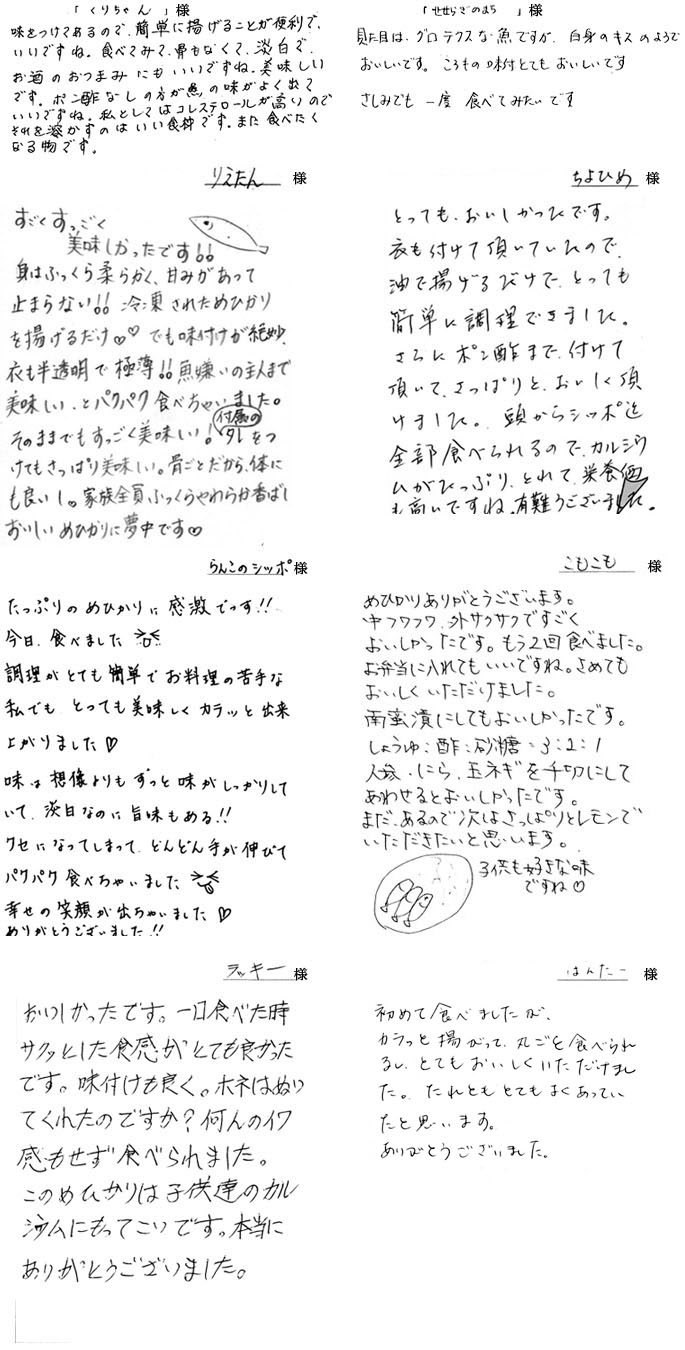 「くりちゃん」様
味をつけてあるので、簡単に揚げることが便利で、
いいですね。食べてみて、骨もなくて、淡白で、
お酒のおつまみにもいいですね。美味しい
です。ポン酢なしの方が魚の味がよく出て
いいですね。私としてはコレステロールが高いので
それを溶かすのはいい食材です。また食べたく
なる物です。
「せせらぎのまち」様
見た目は、グロテクスな魚ですが、白身のキスのようで
おいしいです。ころもの味付とてもおいしいです
さしみでも 一度 食べてみたいです
りえたん 様
すごくすっごく
美味しかったです!!
身はふっくら柔らかく、甘みがあって
止まらない!! 冷凍されためひかり
を揚げるだけ♡♡ でも味付けが絶妙、
衣も半透明で極薄!! 魚嫌いの主人まで
美味しい、とパクパク食べちゃいました。
そのままでもすっごく美味しい! 付属のタレをつ
けてもさっぱり美味しい。骨ごとだから、体に
も良いし。家族全員ふっくらやわらか香ばし
おいしいめひかりに夢中です♡
ちよひめ 様
とっても、おいしかったです。
衣も付けて頂いていたので、
油で揚げるだけで、とっても
簡単に調理できました。
さらにポン酢まで、付けて
頂いて、さっぱりと、おいしく頂
けました。 頭からシッポ迄
全部食べられるので、カルシウ
ムがたっぷり、とれて、栄養価
も高いですね。有難うございました。
らんこのシッポ 様
たっぷりの めひかりに 感激でっす!!
今日、食べました
調理がとても簡単で お料理の苦手な
私でも とっても美味しく カラッと出来
上がりました♡
味は 想像よりも ずっと 味がしっかりして
いて、淡白なのに 旨味もある!!
クセになってしまって、どんどん手が伸びて
パクパク食べちゃいました
幸せの笑顔が出ちゃいました♡
ありがとうございました!!
こもこも 様
めひかりありがとうございます。
中フワフワ、外サクサクですごく
おいしかったです。もう2回食べました。
お弁当に入れてもいいですね。さめても
おいしくいただけました。
南蛮漬にしてもおいしかったです。
しょうゆ:酢:砂糖=3:2:1
人参、にら、玉ネギを千切にして
あわせるとおいしかったです。
まだ、あるので次はさっぱりとレモンで
いただきたいと思います。
子供も好きな味
ですね♡
ラッキー 様
おいしかったです。一口食べた時
サクッとした食感がとても良かった
です。味付けも良く。ホネはぬい
てくれたのですか?何んのイワ
感もせず食べられました。
このめひかりは子供達のカル
シウムにもってこいです。本当に
ありがとうございました。
はんたー 様
初めて食べましたが、
カラッと揚がって、丸ごと食べられ
るし、とてもおいしくいただけまし
た。たれともとてもよくあってい
たと思います。
ありがとうございました。